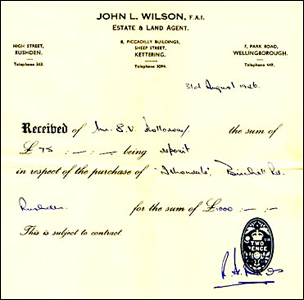 JOHN L. WILSON, F.A.I.
ESTATE & LAND AGENT.
HIGH STREET,
RUSHDEN.
Telephone 363.
8, PICCADILLY BUILDINGS,
SHEEP STREET,
KETTERING.
Telephone 3094.
7, PARK ROAD,
WELLINGBOROUGH.
Telephone 449.
31st August 1946.
Received of Mr. S.V. the sum of
£ 75 : - : - being deposit
in respect of the purchase of Rd.
Rushden for the sum of £1,000 : - : -
This is subject to contract
TWO
PENCE